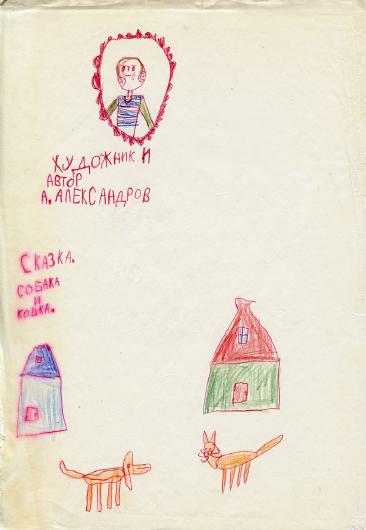 ХУДОЖНИК И
АВТОР
А. АЛЕКСАНДРОВ
СКАЗКА.
СОБАКА
И
КОШКА.